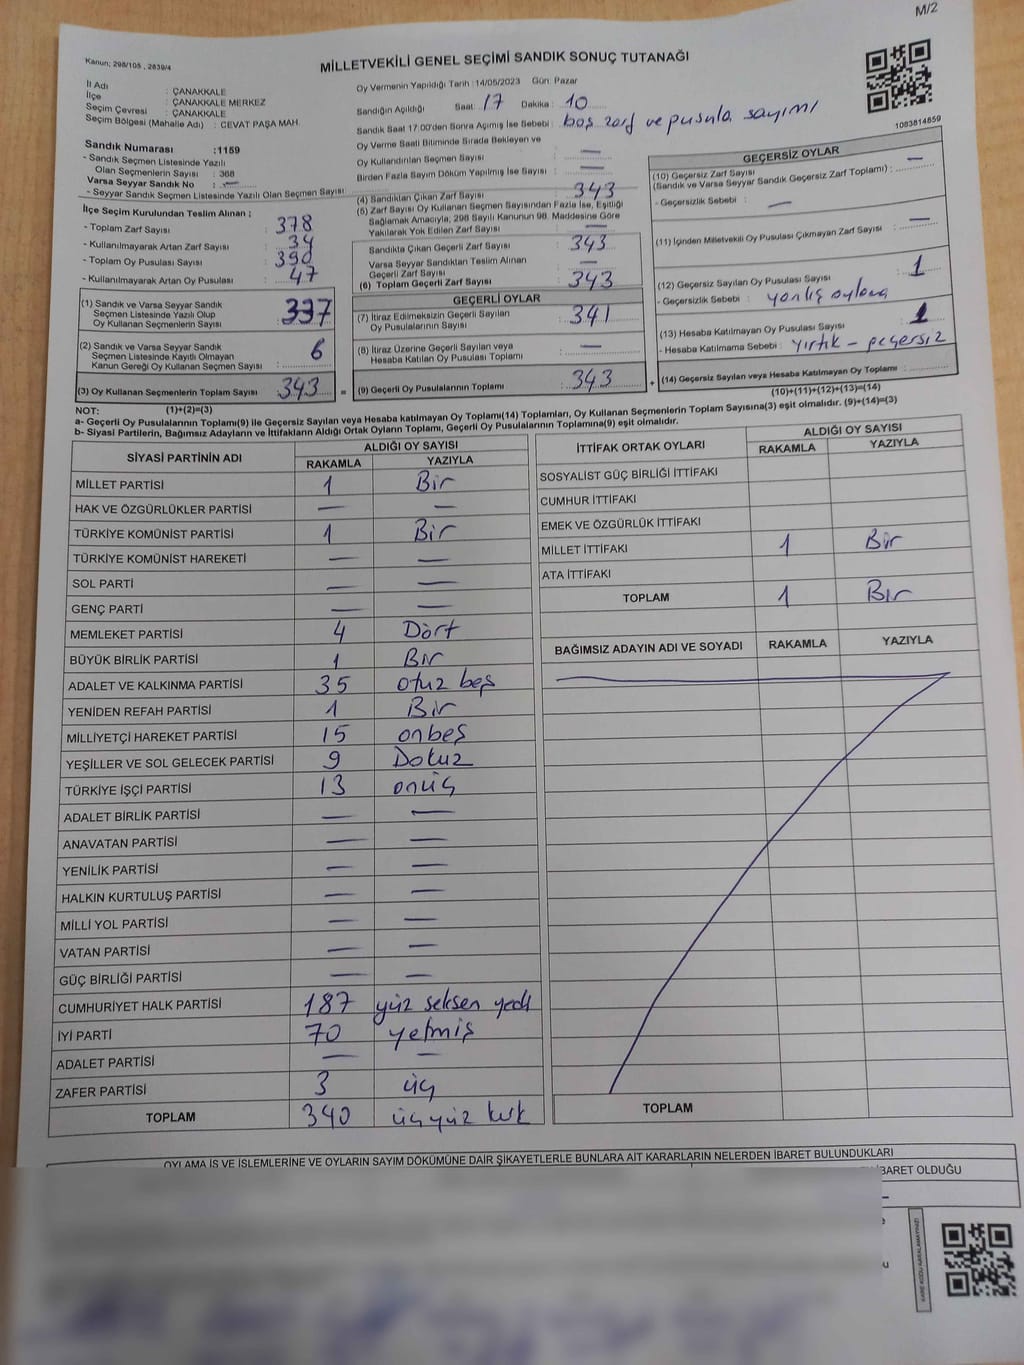 M/2
Kanun; 298/105 , 2839/4
MİLLETVEKİLİ GENEL SEÇİMİ SANDIK SONUÇ TUTANAĞI
İl Adı : ÇANAKKALE
İlçe : ÇANAKKALE MERKEZ
Seçim Çevresi : ÇANAKKALE
Seçim Bölgesi (Mahalle Adı) : CEVAT PAŞA MAH.
Sandık Numarası :1159
- Sandık Seçmen Listesinde Yazılı
Olan Seçmenlerin Sayısı : 368
Varsa Seyyar Sandık No : —
- Seyyar Sandık Seçmen Listesinde Yazılı Olan Seçmen Sayısı
Oy Vermenin Yapıldığı Tarih : 14/05/2023 Gün: Pazar
Sandığın Açıldığı Saat: 17 Dakika : 10
Sandık Saat 17:00'den Sonra Açımış İse Sebebi : boş zarf ve pusula sayımı
Oy Verme Saati Bitiminde Sırada Bekleyen ve
Oy Kullandırılan Seçmen Sayısı : —
Birden Fazla Sayım Döküm Yapılmış İse Sayısı : —
1083814859
İlçe Seçim Kurulundan Teslim Alınan ;
- Toplam Zarf Sayısı : 378
- Kullanılmayarak Artan Zarf Sayısı : 34
- Toplam Oy Pusulası Sayısı : 390
- Kullanılmayarak Artan Oy Pusulası : 47
(1) Sandık ve Varsa Seyyar Sandık
Seçmen Listesinde Yazılı Olup
Oy Kullanan Seçmenlerin Sayısı : 337
(2) Sandık ve Varsa Seyyar Sandık
Seçmen Listesinde Kayıtlı Olmayan
Kanun Gereği Oy Kullanan Seçmen Sayısı : 6
(3) Oy Kullanan Seçmenlerin Toplam Sayısı : 343 =
(1)+(2)=(3)
(4) Sandıktan Çıkan Zarf Sayısı : 343
(5) Zarf Sayısı Oy Kullanan Seçmen Sayısından Fazla İse, Eşitliği
Sağlamak Amacıyla, 298 Sayılı Kanunun 98. Maddesine Göre
Yakılarak Yok Edilen Zarf Sayısı : —
Sandıkta Çıkan Geçerli Zarf Sayısı : 343
Varsa Seyyar Sandıktan Teslim Alınan
Geçerli Zarf Sayısı : —
(6) Toplam Geçerli Zarf Sayısı : 343
GEÇERLİ OYLAR
(7) İtiraz Edilmeksizin Geçerli Sayılan
Oy Pusulalarının Sayısı : 341
(8) İtiraz Üzerine Geçerli Sayılan veya
Hesaba Katılan Oy Pusulası Toplamı : —
(9) Geçerli Oy Pusulalarının Toplamı : 343 +
GEÇERSİZ OYLAR
(10) Geçersiz Zarf Sayısı
(Sandık ve Varsa Seyyar Sandık Geçersiz Zarf Toplamı) : —
- Geçersizlik Sebebi : —
(11) İçinden Milletvekili Oy Pusulası Çıkmayan Zarf Sayısı : —
(12) Geçersiz Sayılan Oy Pusulası Sayısı : 1
- Geçersizlik Sebebi : yanlış oylama
(13) Hesaba Katılmayan Oy Pusulası Sayısı : 1
- Hesaba Katılmama Sebebi : yırtık – geçersiz
(14) Geçersiz Sayılan veya Hesaba Katılmayan Oy Toplamı :
(10)+(11)+(12)+(13)=(14)
NOT:
a- Geçerli Oy Pusulalarının Toplamı(9) ile Geçersiz Sayılan veya Hesaba katılmayan Oy Toplamı(14) Toplamları, Oy Kullanan Seçmenlerin Toplam Sayısına(3) eşit olmalıdır. (9)+(14)=(3)
b- Siyasi Partilerin, Bağımsız Adayların ve İttifakların Aldığı Ortak Oyların Toplamı, Geçerli Oy Pusulalarının Toplamına(9) eşit olmalıdır.
SİYASİ PARTİNİN ADI ALDIĞI OY SAYISI
RAKAMLA YAZIYLA
MİLLET PARTİSİ 1 Bir
HAK VE ÖZGÜRLÜKLER PARTİSİ — —
TÜRKİYE KOMÜNİST PARTİSİ 1 Bir
TÜRKİYE KOMÜNİST HAREKETİ — —
SOL PARTİ — —
GENÇ PARTİ — —
MEMLEKET PARTİSİ 4 Dört
BÜYÜK BİRLİK PARTİSİ 1 Bir
ADALET VE KALKINMA PARTİSİ 35 otuz beş
YENİDEN REFAH PARTİSİ 1 Bir
MİLLİYETÇİ HAREKET PARTİSİ 15 onbeş
YEŞİLLER VE SOL GELECEK PARTİSİ 9 Dokuz
TÜRKİYE İŞÇİ PARTİSİ 13 onüç
ADALET BİRLİK PARTİSİ — —
ANAVATAN PARTİSİ — —
YENİLİK PARTİSİ — —
HALKIN KURTULUŞ PARTİSİ — —
MİLLİ YOL PARTİSİ — —
VATAN PARTİSİ — —
GÜÇ BİRLİĞİ PARTİSİ — —
CUMHURİYET HALK PARTİSİ 187 yüz seksen yedi
İYİ PARTİ 70 yetmiş
ADALET PARTİSİ — —
ZAFER PARTİSİ 3 üç
TOPLAM 340 üçyüz kırk
İTTİFAK ORTAK OYLARI ALDIĞI OY SAYISI
RAKAMLA YAZIYLA
SOSYALİST GÜÇ BİRLİĞİ İTTİFAKI
CUMHUR İTTİFAKI
EMEK VE ÖZGÜRLÜK İTTİFAKI
MİLLET İTTİFAKI 1 Bir
ATA İTTİFAKI
TOPLAM 1 Bir
BAĞIMSIZ ADAYIN ADI VE SOYADI RAKAMLA YAZIYLA
TOPLAM
OYLAMA İŞ VE İŞLEMLERİNE VE OYLARIN SAYIM DÖKÜMÜNE DAİR ŞİKAYETLERLE BUNLARA AİT KARARLARIN NELERDEN İBARET BULUNDUKLARI
İBARET OLDUĞU
KARE KODU KARALAMAYINIZ!